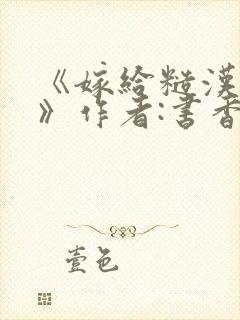 《嫁给糙汉
》作者:书香
壹邑